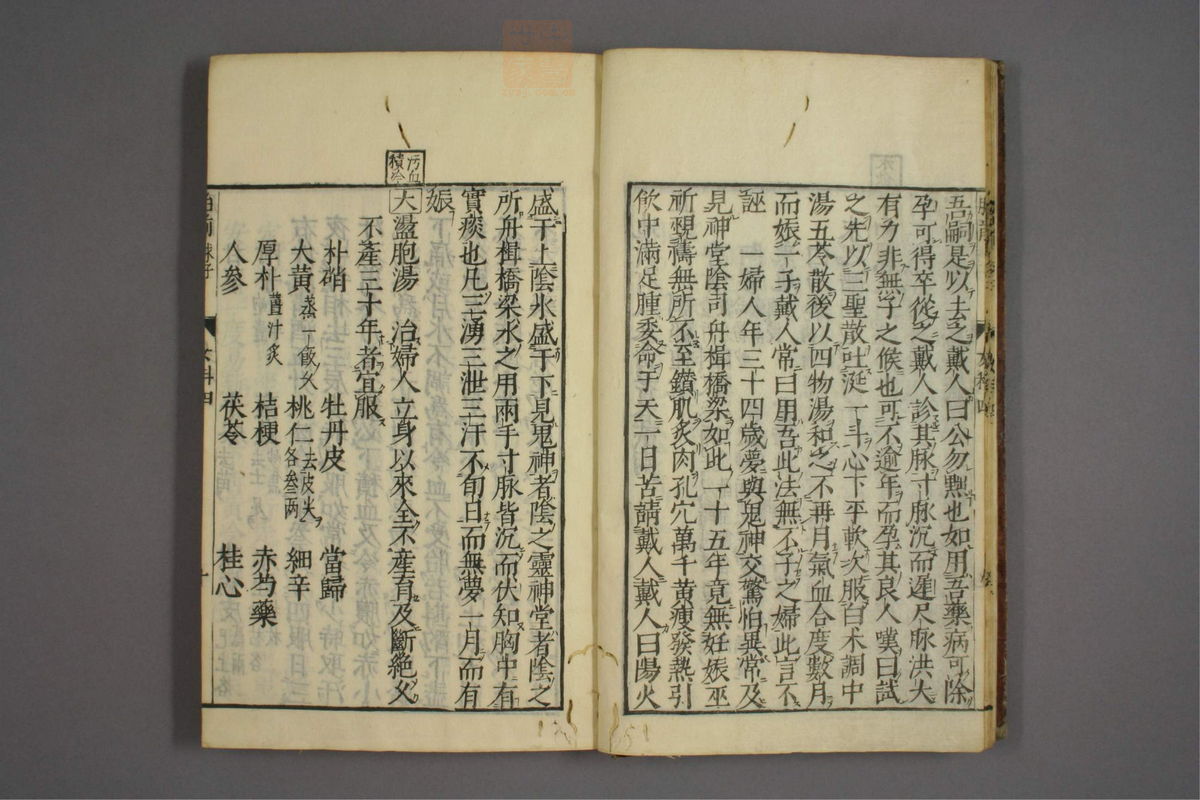 吾嗣是以去之戴人曰公勿黙也如用吾藥病可除
孕可得卒從之戴人診其脉寸脉沉而遲尺脉洪大
有力非無子之候也可不逾年而孕其良人嘆曰試
之先以三聖散吐涎一斗心下平軟次服白术調中
湯五苓散後以四物湯和之不再月氣血合度數月
而娠一子戴人常曰用吾此法無不子之婦此言不
誣　一婦人年三十四歲夢與鬼神交驚怕異常及
見神堂陰司舟楫橋梁如此一十五年竟無妊娠巫
祈覡禱無所不至鑽肌炙肉孔穴萬千黄瘦發熱引
飲中滿足腫委命于天一日苦請戴人戴人曰陽火
盛于上陰水盛于下見鬼神者陰之靈神堂者陰之
所舟楫橋梁水之用兩手寸脉皆沉而伏知胸中有
實痰也凡三湧三泄三汗不旬日而無夢一月而有
娠
污血積冷
大盪胞湯　治婦人立身以來全不產育及斷絶久
不產三十年者宜服
朴硝　牡丹皮　當歸
大黄蒸一飯久　桃仁去皮尖各叁两　細辛
厚朴薑汁炙　桔梗　赤芍藥
人參　茯苓　桂心
女科四